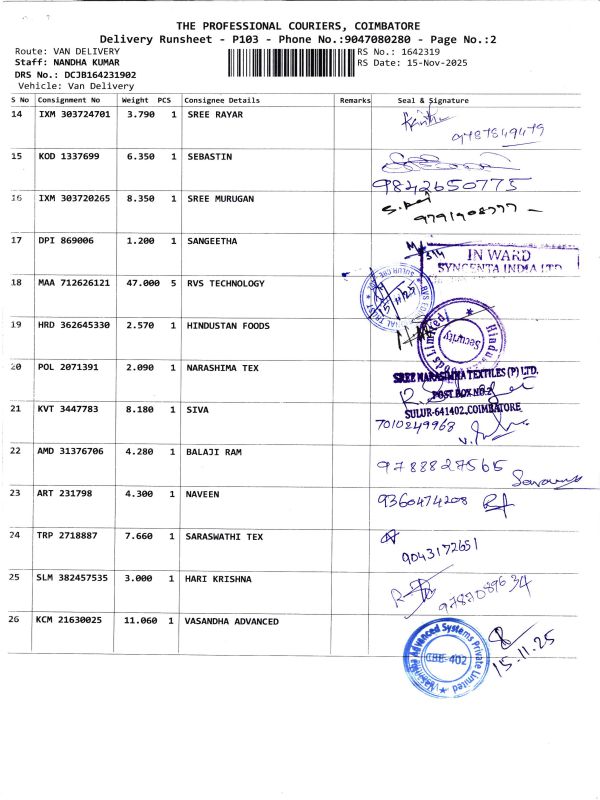 THE PROFESSIONAL COURIERS, COIMBATORE
Delivery Runsheet - P103 - Phone No.:9047080280 - Page No.:2
Route: VAN DELIVERY RS No.: 1642319
Staff: NANDHA KUMAR RS Date: 15-Nov-2025
DRS No.: DCJB164231902
Vehicle: Van Delivery
S No Consignment No Weight PCS Consignee Details Remarks Seal & Signature
14 IXM 303724701 3.790 1 SREE RAYAR
9787849479
15 KOD 1337699 6.350 1 SEBASTIN
9842650775
16 IXM 303720265 8.350 1 SREE MURUGAN
9791908777 -
17 DPI 869006 1.200 1 SANGEETHA
IN WARD
SYNGENTA INDIA LTD
18 MAA 712626121 47.000 5 RVS TECHNOLOGY
15/11/25
19 HRD 362645330 2.570 1 HINDUSTAN FOODS
Security
20 POL 2071391 2.090 1 NARASHIMA TEX
SREE NARASIMHA TEXTILES (P) LTD.
POST BOX NO.2
SULUR-641402, COIMBATORE
21 KVT 3447783 8.180 1 SIVA
7010249968
22 AMD 31376706 4.280 1 BALAJI RAM
9788827565
23 ART 231798 4.300 1 NAVEEN
9360474208
24 TRP 2718887 7.660 1 SARASWATHI TEX
9043172651
25 SLM 382457535 3.000 1 HARI KRISHNA
9787089634
26 KCM 21630025 11.060 1 VASANDHA ADVANCED
Vasantha Advanced Systems Private Limited
CBE 402
15.11.25